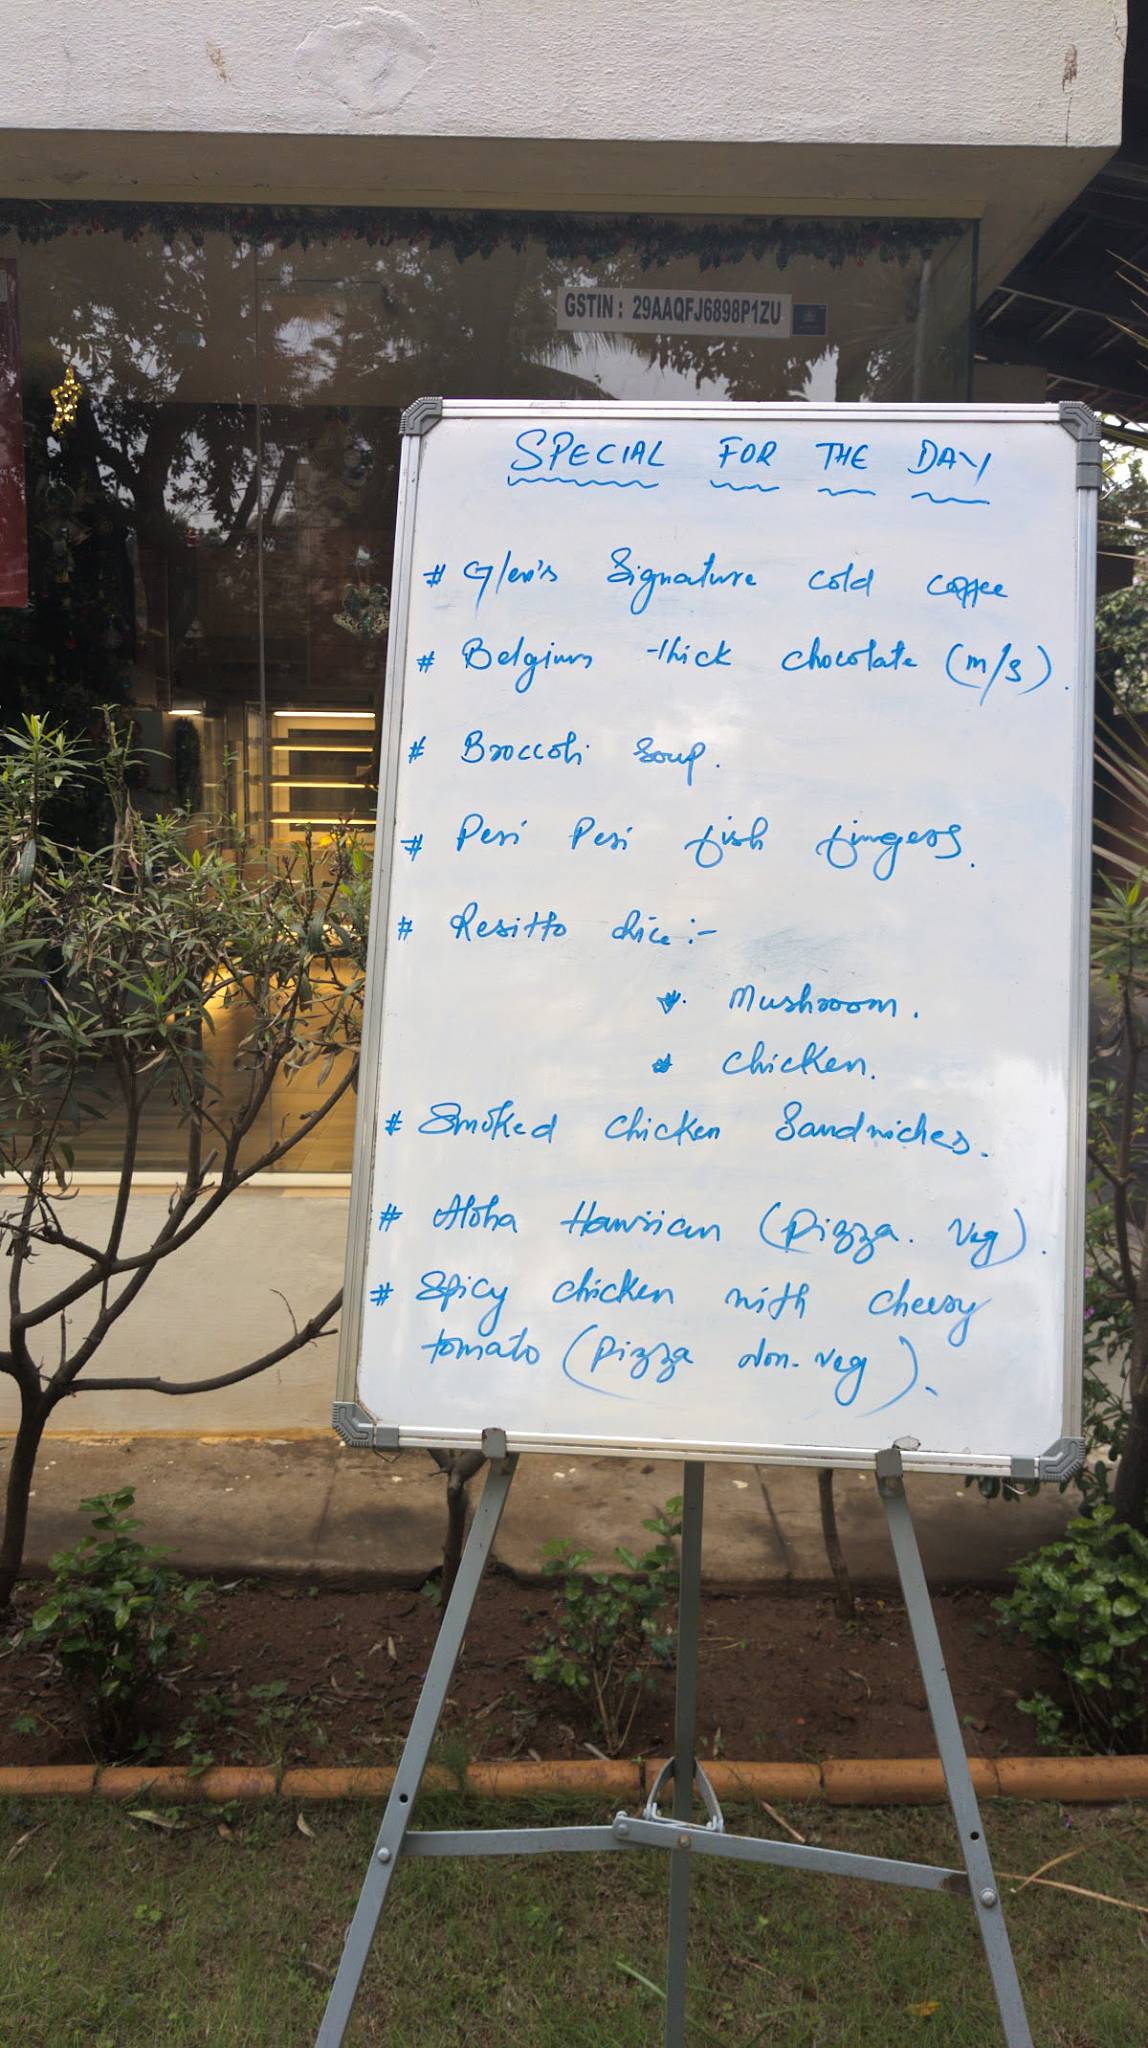 GSTIN : 29AAQFJ6898P1ZU
SPECIAL FOR THE DAY
# Glen's Signature cold coffee
# Belgium thick chocolate (m/s).
# Broccoli Soup.
# Peri Peri fish fingers.
# Resitto Rice:-
* Mushroom.
* chicken.
# Smoked chicken Sandwiches.
# Aloha Hawsian (Pizza. Veg).
# Spicy chicken with cheesy
tomato (Pizza Non-veg).